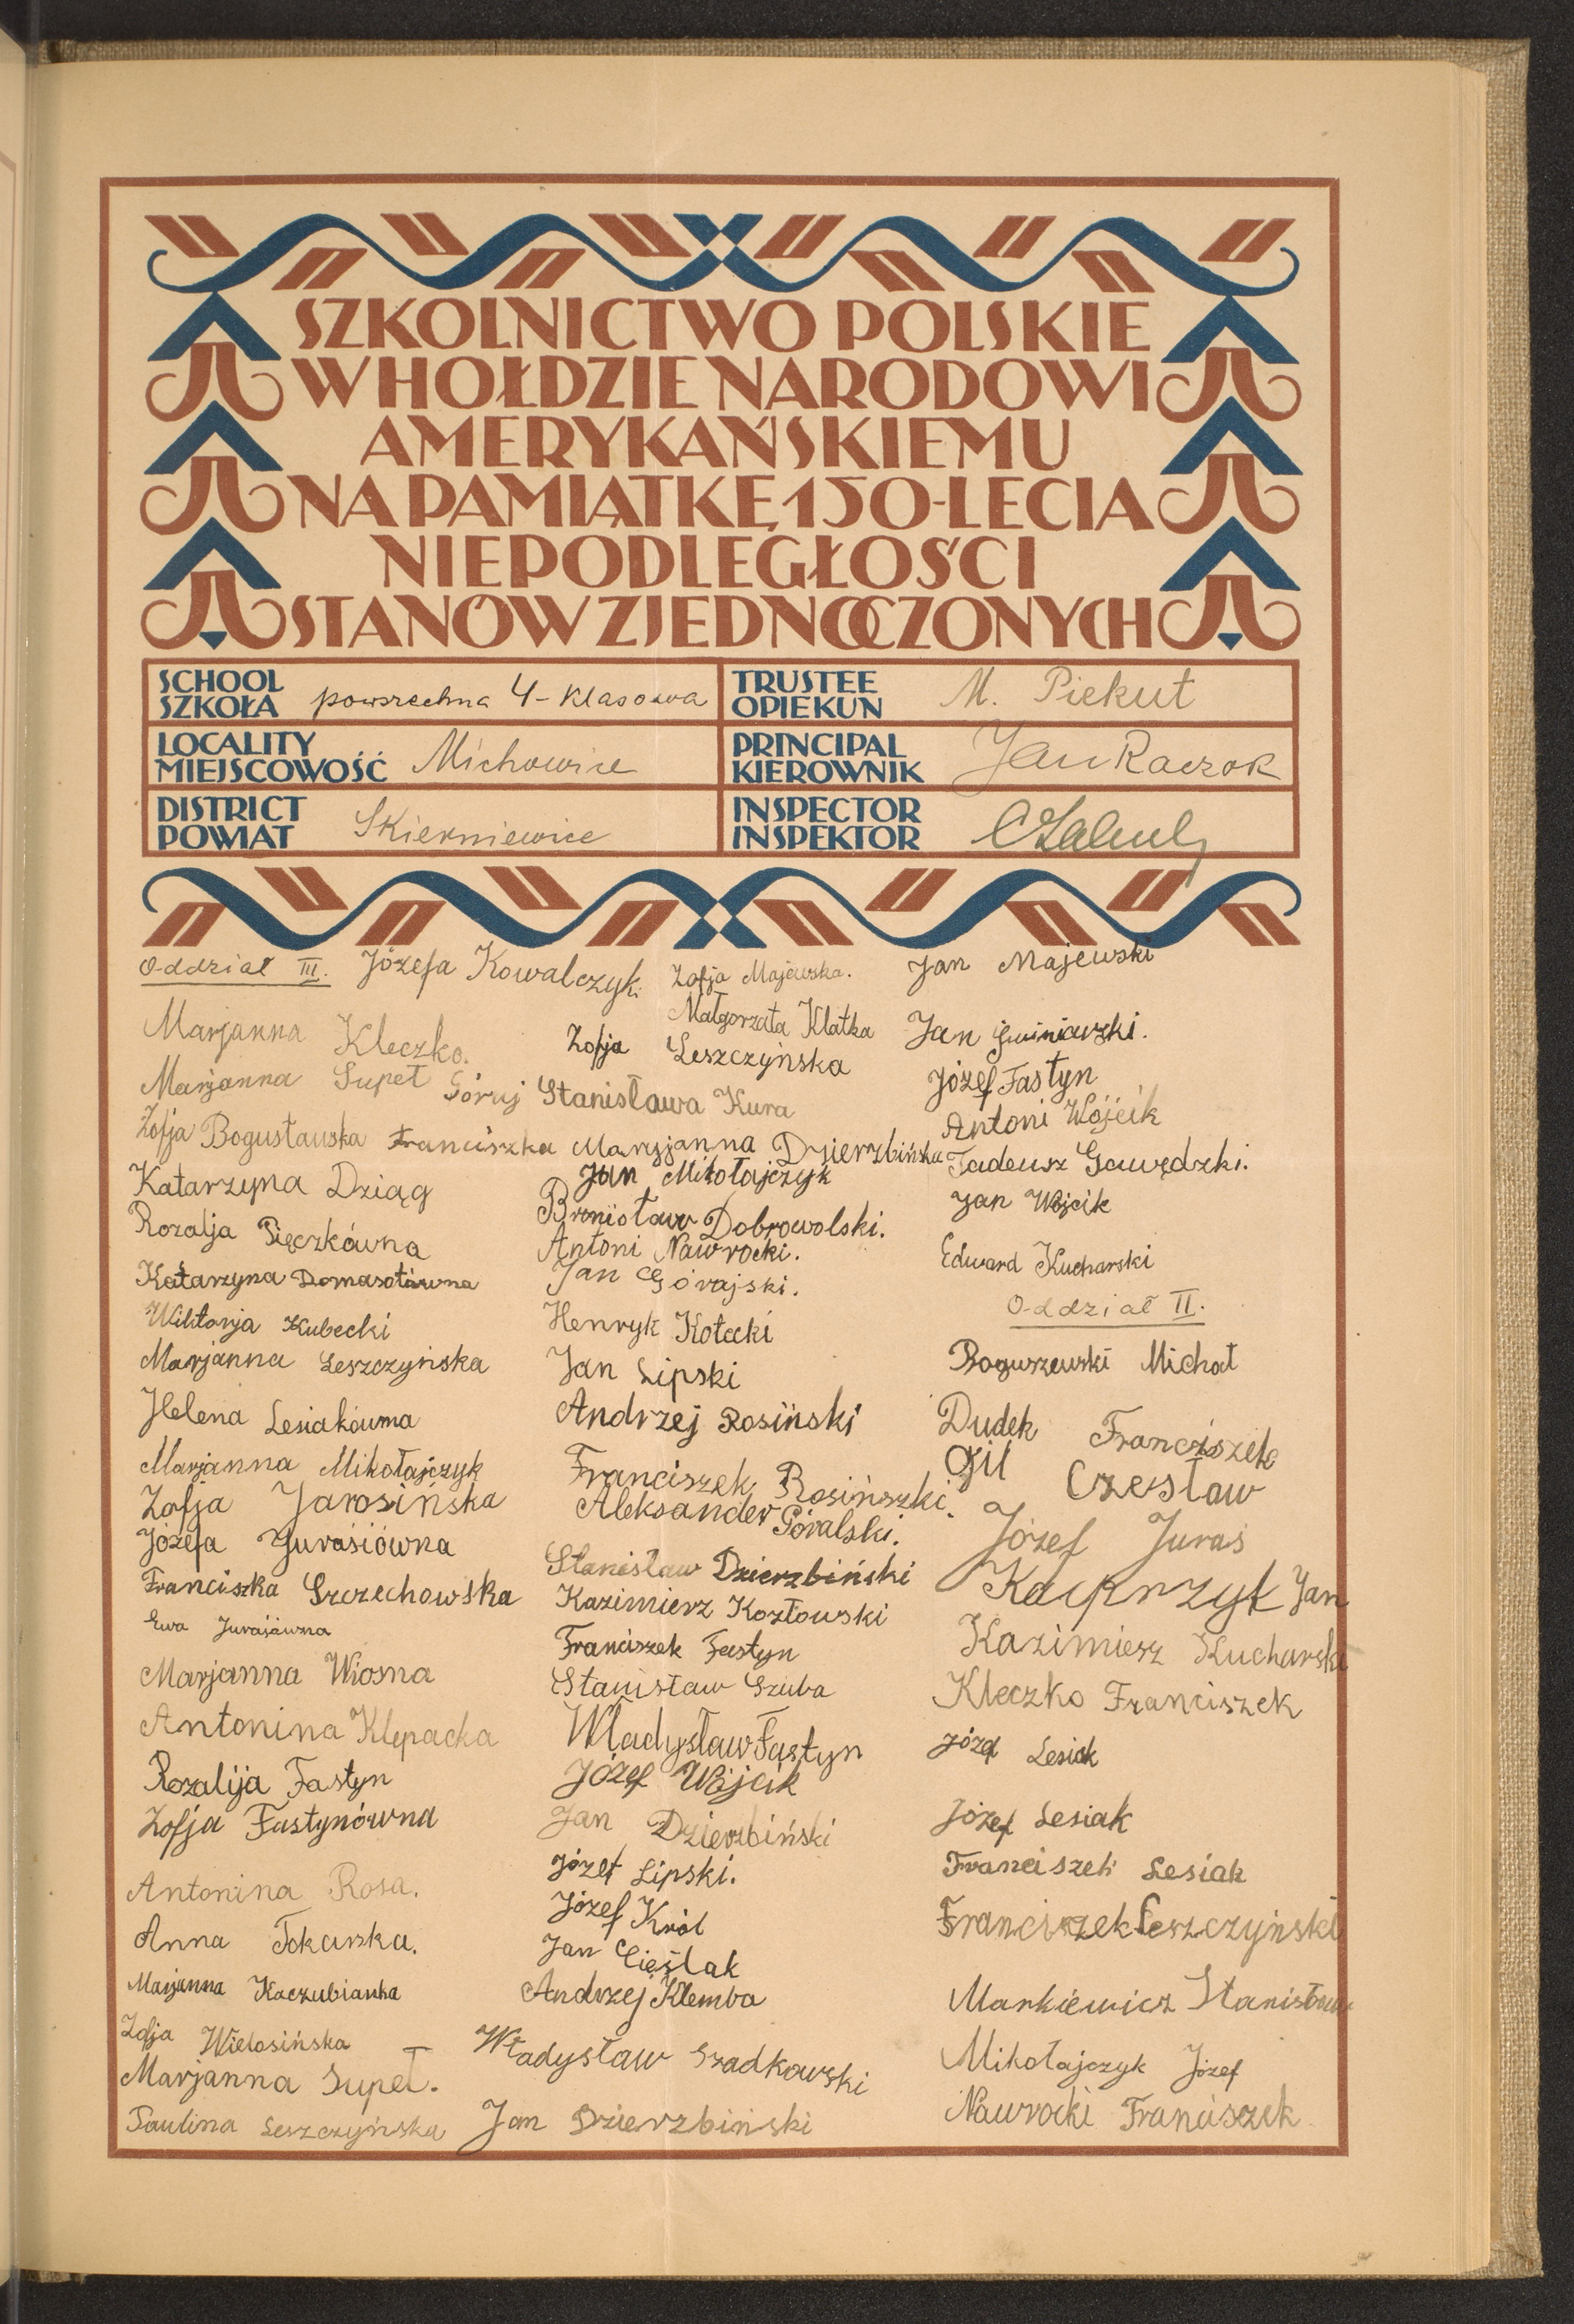 SZKOLNICTWO POLSKIE
W HOŁDZIE NARODOWI
AMERYKAŃSKIEMU
NA PAMIĄTKĘ 150-LECIA
NIEPODLEGŁOŚCI
STANÓW ZJEDNOCZONYCH
SCHOOL
SZKOŁA powszechna 4-klasowa
TRUSTEE
OPIEKUN M. Piekut
LOCALITY
MIEJSCOWOŚĆ Michowice
PRINCIPAL
KIEROWNIK Jan Raczek
DISTRICT
POWIAT Skierniewice
INSPECTOR
INSPEKTOR
Oddział III.
Józefa Kowalczyk.
Marjanna Kleczko.
Marjanna Supeł
Zofja Bogusławska
Katarzyna Dziąg
Rozalja Pięczkówna
Katarzyna Domasołówna
Wiktorja Kubecki
Marjanna Leszczyńska
Helena Lesiakówma
Marjanna Mikołajczyk
Zofja Jarosińska
Józefa Jurasiówna
Franciszka Szczechowska
Ewa Jurasiówna
Marjanna Wiosna
Antonina Klepacka
Rozalija Fastyn
Zofja Fastynówna
Antonina Rosa.
Anna Tokarska.
Marjanna Kaczubianka
Zofja Wielosińska
Marjanna Supeł.
Paulina Leszczyńska
Zofja Majewska.
Małgorzata Klatka
Zofja Leszczyńska
Góraj Stanisława Kura
Franciszka Maryjanna Dzierzbińska
Jan Mikołajczyk
Bronisław Dobrowolski.
Antoni Nawrocki.
Jan Górajski.
Henryk Kotecki
Jan Lipski
Andrzej Rosiński
Franciszek Rosińszki.
Aleksander Góralski.
Stanisław Dzierzbiński
Kazimierz Kozłowski
Franciszek Fastyn
Stanisław Szuba
Władysław Fastyn
Józef Wójcik
Jan Dzierzbiński
Józef Lipski.
Józef Król
Jan Cieślak
Andrzej Klemba
Władysław Szadkowski
Jan Dzierzbiński
Jan Majewski
Jan
Józef Fastyn
Antoni Wójcik
Tadeusz Gawędzki.
Jan Wójcik
Edward Kucharski
Oddział II.
Boguszewski Michał
Dudek Franciszek
Gil Czesław
Józef Juraś
Kacprzyk Jan
Kazimiesz Kucharski
Kleczko Franciszek
Józef Lesiak
Józef Lesiak
Franciszek Lesiak
Franciszek Leszczyński
Markiewicz Stanisław
Mikołajczyk Józef
Nawrocki Franciszek